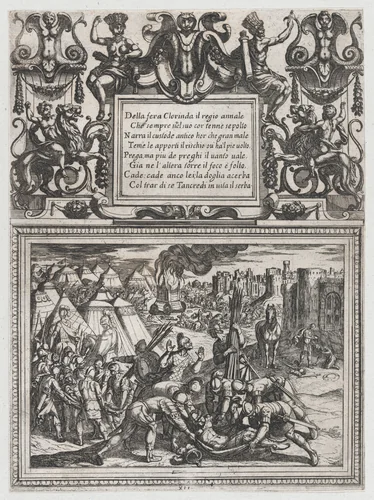 Della fera Clorinda il regio annale
Che sempre nel suo cor tenne sepolto
Narra il custode antico hor che gran male
Teme le apporti il rischio ou hal pie uolto.
Prega, ma piu de preghi il uanto uale.
Gia ne l'altera torre il foco è folto.
Cade: cade anco lexla doglia acerba
Col trar di se Tancredi in uita il serba